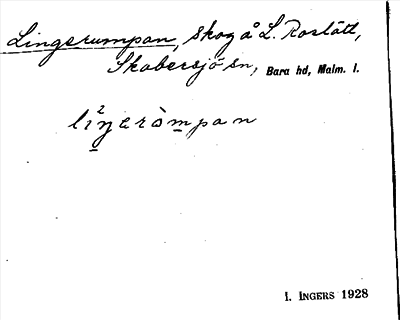 Lingerumpan, skog å L. Roslätt,
Skabersjö sn, Bara hd, Malm. l.
li²ŋeròmpan
I. INGERS 1928